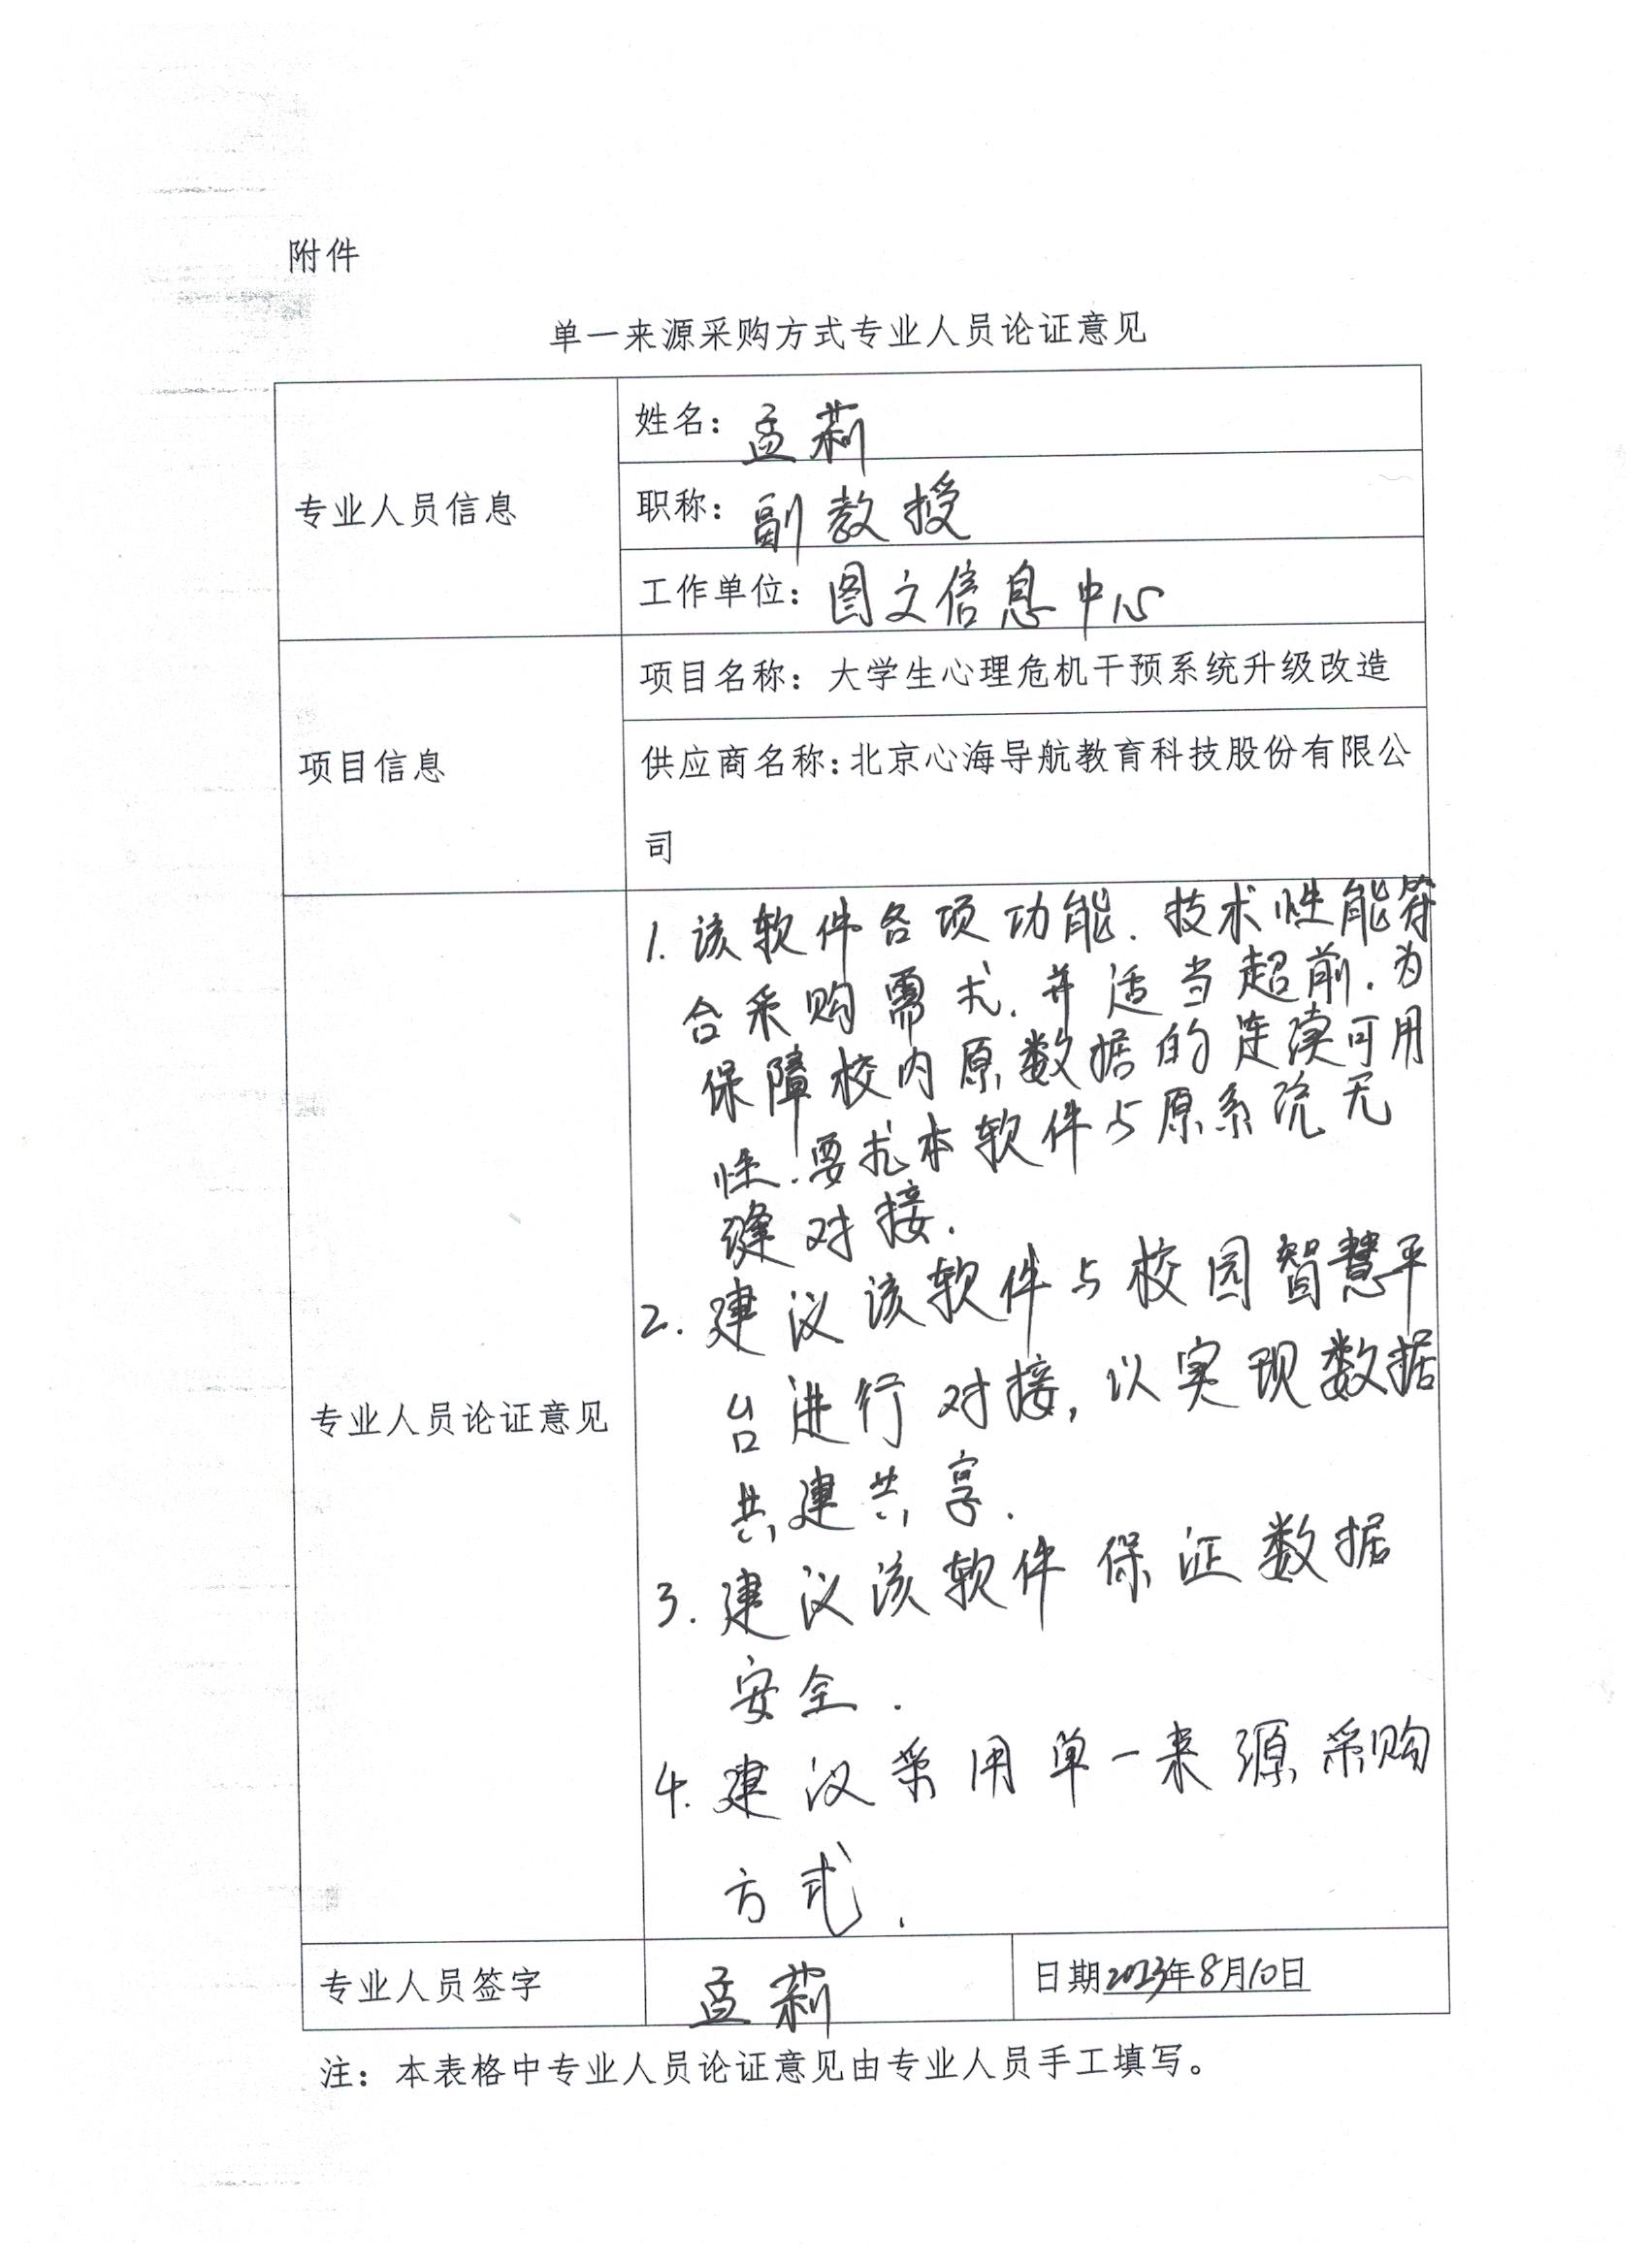 附件
单一来源采购方式专业人员论证意见
专业人员信息
姓名：孟莉
职称：副教授
工作单位：图文信息中心
项目信息
项目名称：大学生心理危机干预系统升级改造
供应商名称：北京心海导航教育科技股份有限公
司
专业人员论证意见
1. 该软件各项功能、技术性能符
合采购需求，并适当超前，为
保障校内原数据的连续可用
性，要求本软件与原系统无
缝对接.
2. 建议该软件与校园智慧平
台进行对接，以实现数据
共建共享.
3. 建议该软件保证数据
安全.
4. 建议采用单一来源采购
方式.
专业人员签字
孟莉
日期2023年8月10日
注：本表格中专业人员论证意见由专业人员手工填写。